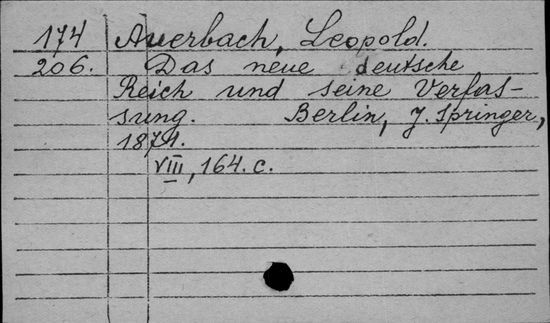 174 Auerbach, Leopold.
206. Das neue deutsche
Reich und seine Verfas-
sung. Berlin, J. Springer,
1871.
VIII, 164. c.